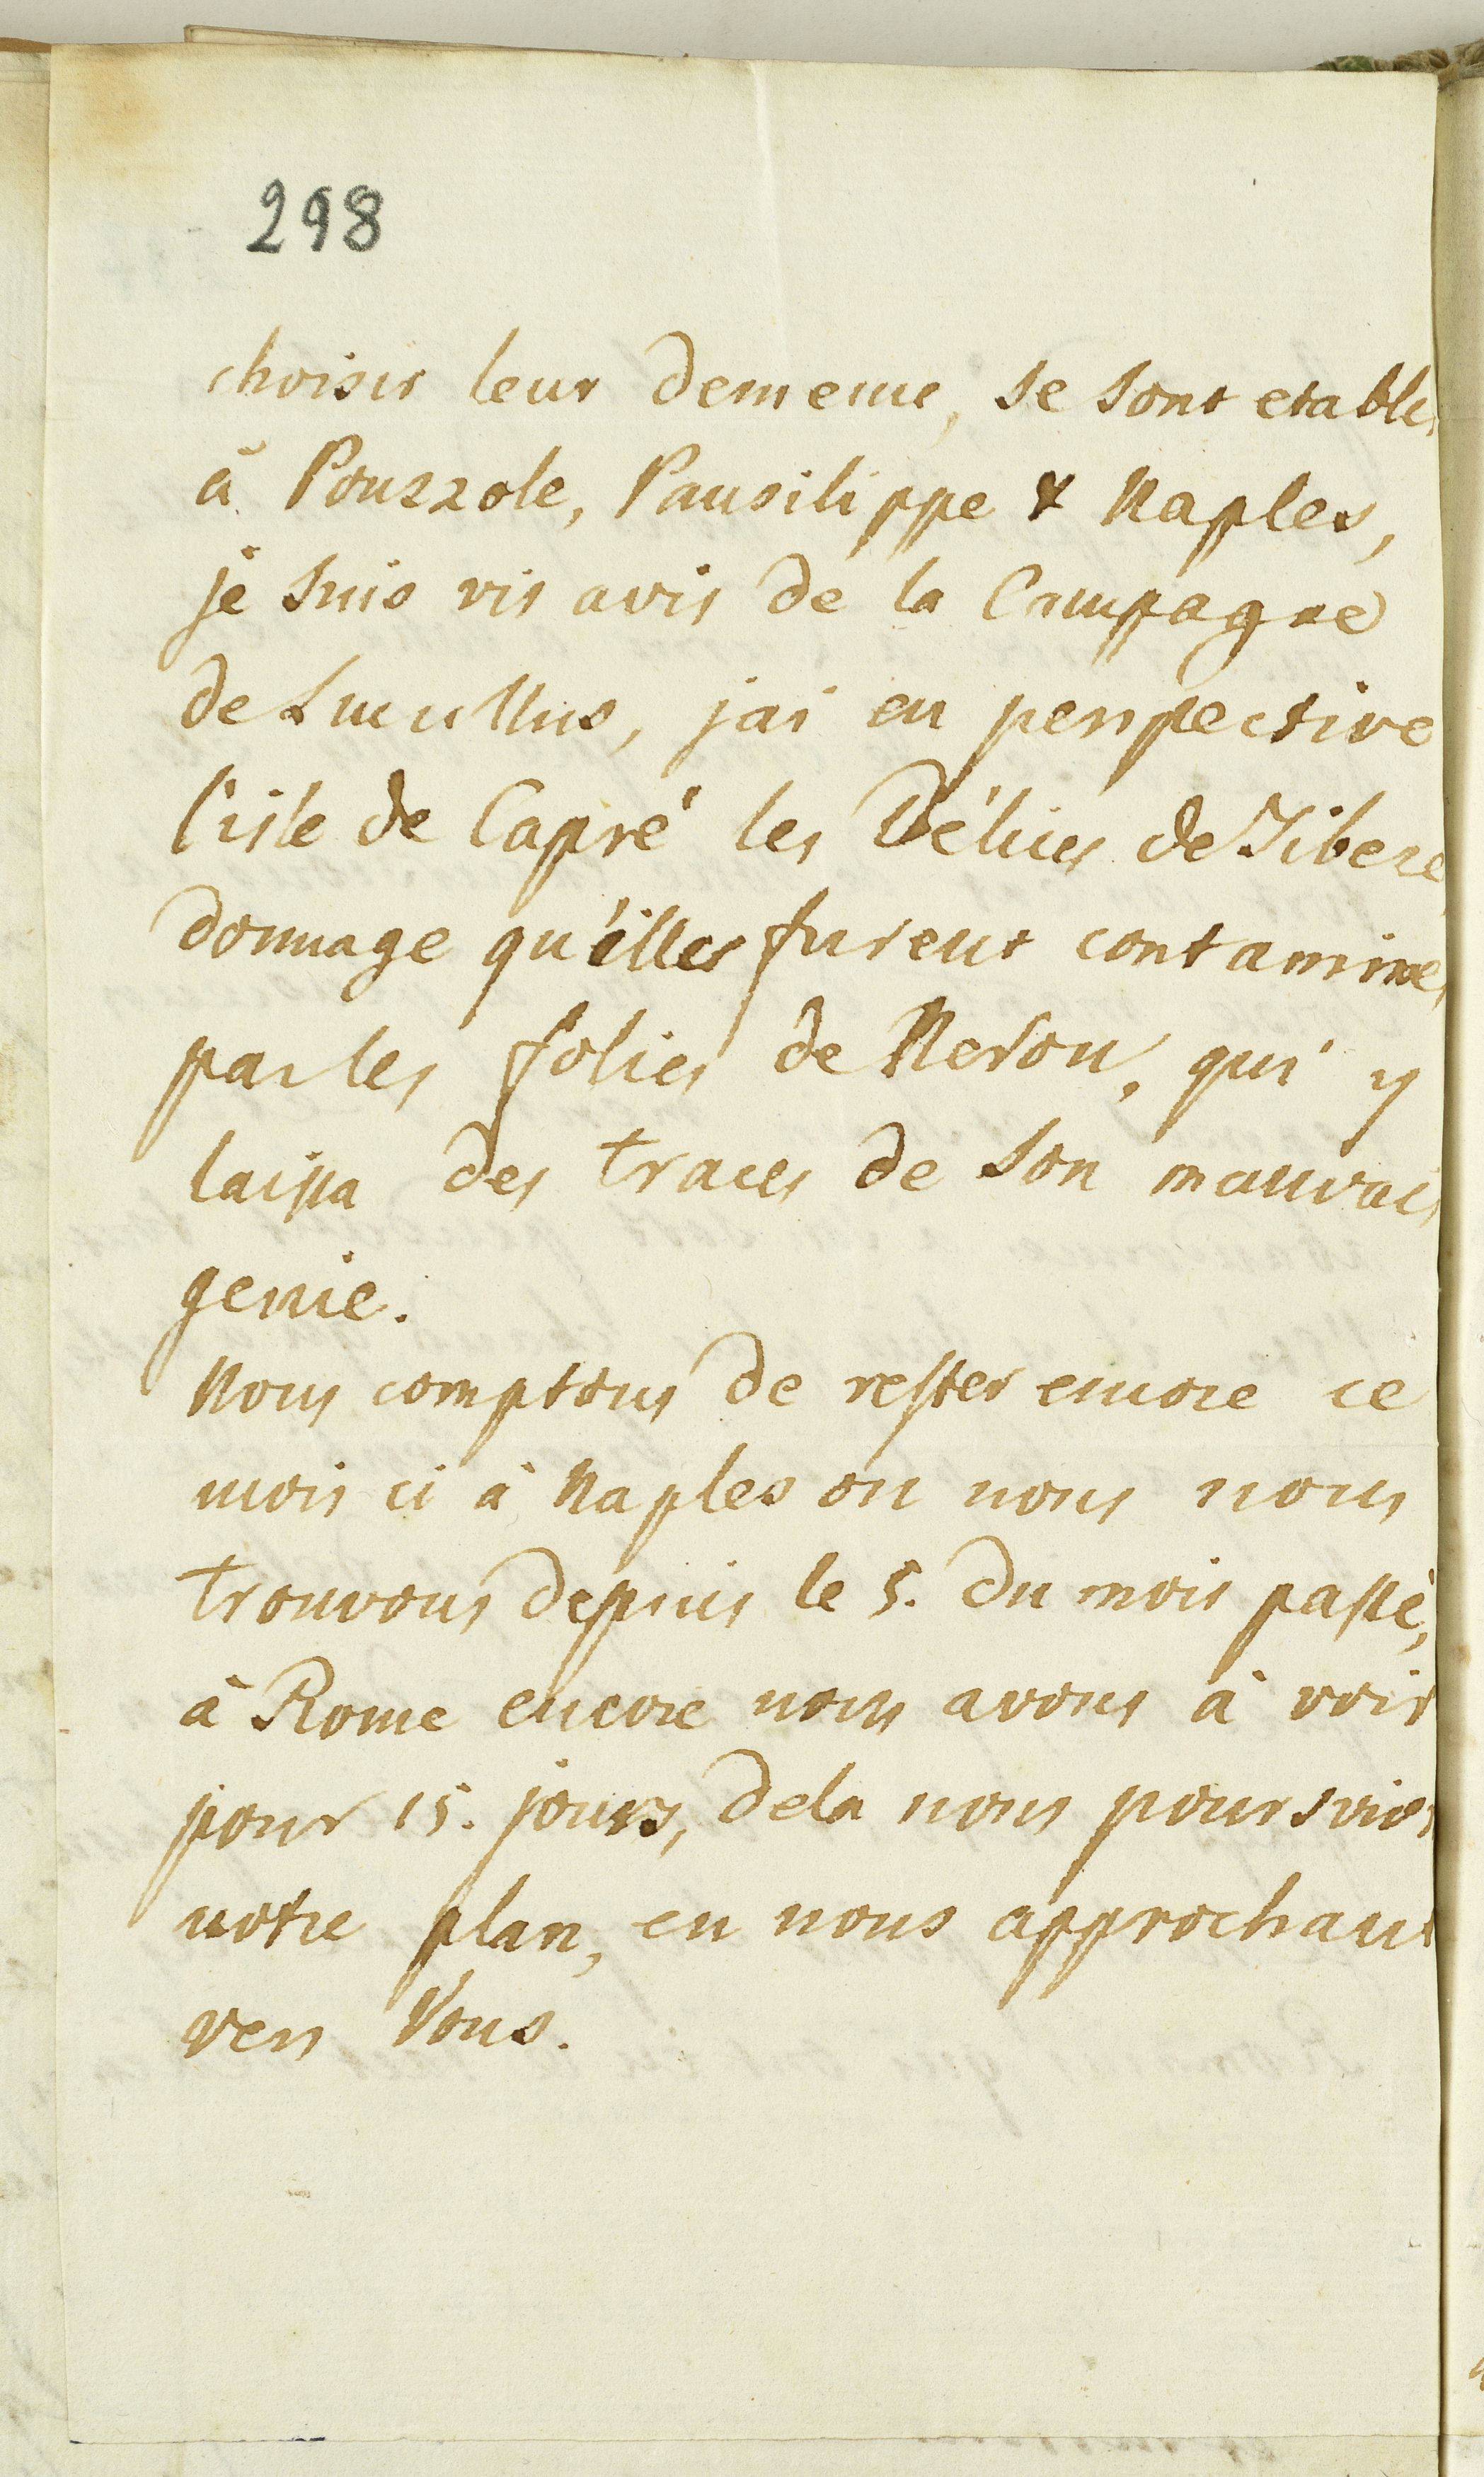 298
choisir leur demeure, se sont etablis
à Pouzzole, Pausilippe & Naples,
je suis vis avis de la Campagne
de Lucullus, jai en perspective
l'isle de Capré les Délices de Tibere
dommage qu'elles furent contaminées
par les folies de Neron, qui y
laissa des traces de son mauvais
genie.
Nous comptons de rester encore ce
mois ci à Naples ou nous nous
trouvons depuis le 5. du mois passé,
à Rome encore nous avons à voir
pour 15. jours, dela nous poursuivons
notre plan, en nous approchant
vers Vous.